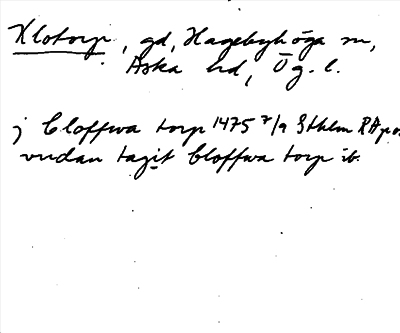 Klotorp, gd, Hagebyhöga sn,
Aska hd, Ög. l.
j Cloffwa torp 1475 7/9 Sthlm RA po
vndan tagit Cloffwa torp ib.